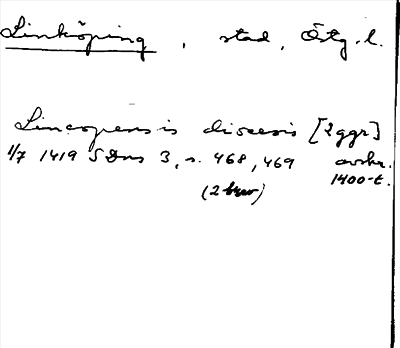 Linköping, stad, Östg. l.
Lincopensis diocesis [2ggr]
1/7 1419 SDns 3, s. 468, 469 avskr.
(2 brev) 1400-t.